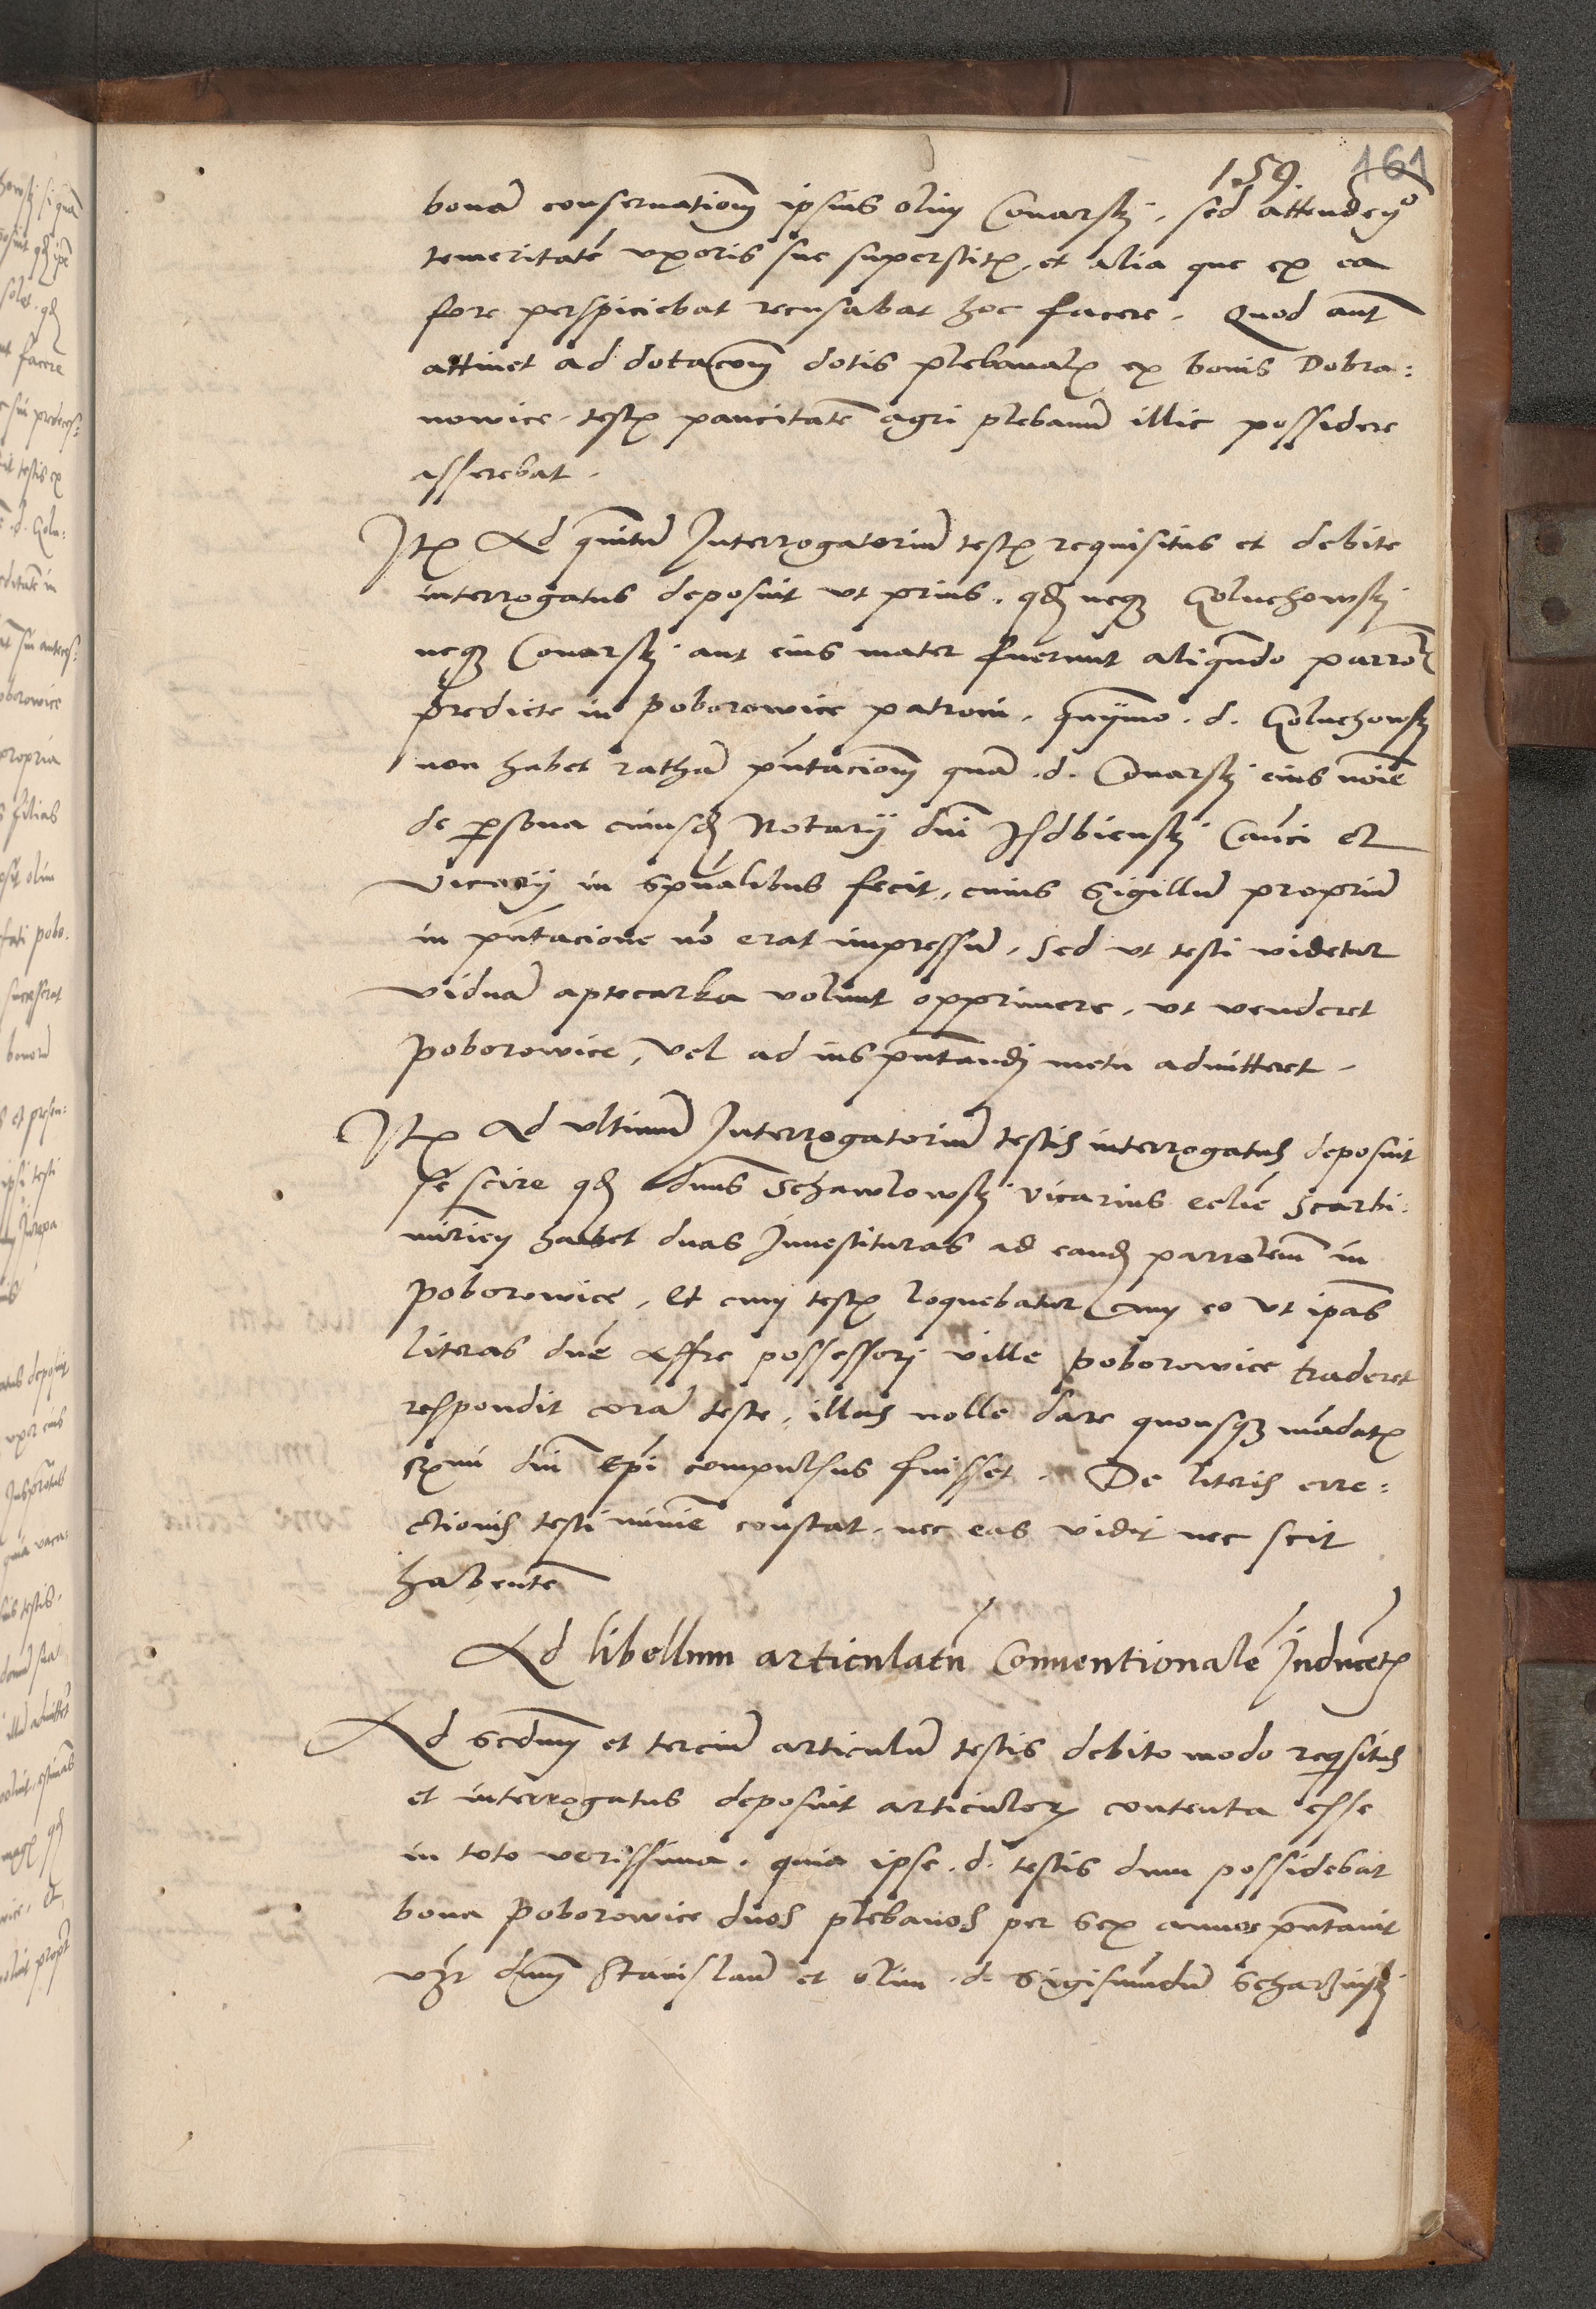 159. 161
bonā conseruationem ipsius olim Conarskj, sed attendeno
temeritatē vxoris sue superstitis, et alia que ex ea
fore perspiciebat recusabat hoc facere. Quod aut̄
attinet ad dotacōm dotis plebanalis ex bonis Dobra:
nowice testis paucitatē agri plebanū illic possidere
asserebat.
Itē Ad quītū Interrogatoriū testis requisitus et debite
interrogatus deposuit vt prius. qđ neqȝ Goluchowskj
neqȝ Conarskj aut eius mater fuerunt aliqn̄do parrol̄
predicte in Poborowice patroni. quȳmo .d. Goluchowskj
non habet rathā pn̄tacionem quā .d. Conarskj eius noīe
de persona cuiusđ Notarij dn̄i Isdbienskj Canci et
vicarij in spūalibus fecit, cuius Sigillū propriū
in pn̄tacione nō erat impressū. Sed vt testi videtur
viduā aptecarka volunt opprimere, vt venderet
Poborowice, vel ad ius pn̄tandj metu admitteret.
Itē Ad vltimū Interrogatoriū testis interrogatus deposuit
se scire qđ dn̄us Schawlowskj vicarius eclīe Scarbi:
mirien habet duas Inuestituras ad eandē parrolem̄ in
Poborowice, Et cum testis loquebatur cum eo vt ip̄as
literas dn̄e Affre possessorj ville Poborowice traderet
respondit corā teste, illas nolle dare quousqȝ mādatis
Rximi dn̄i Epī compulsus fuisset. De literis erre:
ctionis testi minīe constat, nec eas vidit nec scit
habentē
Ad libellum articulatū Conuentionalē Inducētis
Ad secdum et terciū articulū testis debito modo reqsitus
et interrogatus deposuit articulorꝝ contenta esse
in toto verissima. quia ipse .d. testis dum possidebat
bona Poborowice duos plebanos per sex annos pn̄tauit
vȝt dn̄m Stanislaū et olim .d. Sigismūdū Scharzinskj